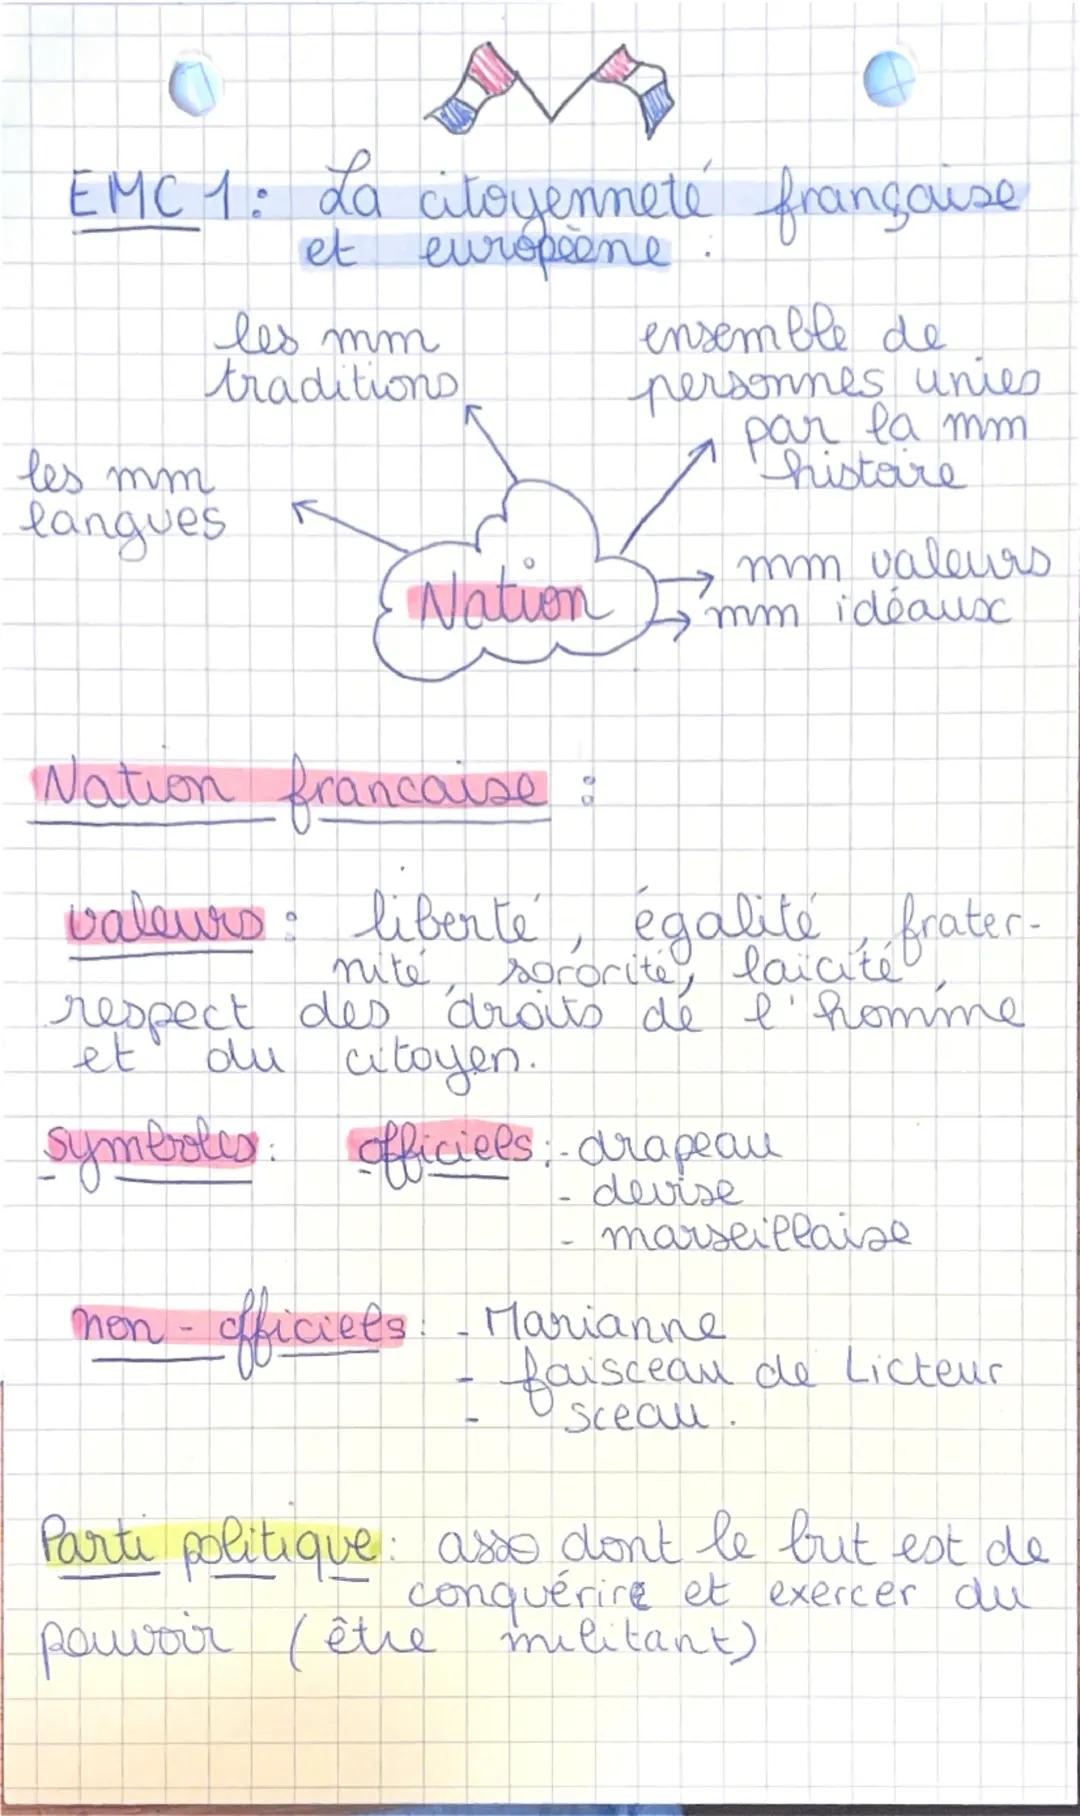 EMC 1: La citoyenneté française
et européène.
les mm
traditions
ensemble de
personnes unies
par la mm
histoire
les mm
langues
Nation
mm valeurs
mm idéaux
Nation francaise :
valeurs : liberté, égalité, frater-
nité, sororité, laicité,
respect des droits de l'homme
et du citoyen.
symboles: officiels: - drapeau
- devise
- marseillaise
non-officiels: - Marianne
- faisceau de Licteur
- sceau.
Parti politique: asso dont le but est de
conquérire et exercer du
pouvoir (être militant)